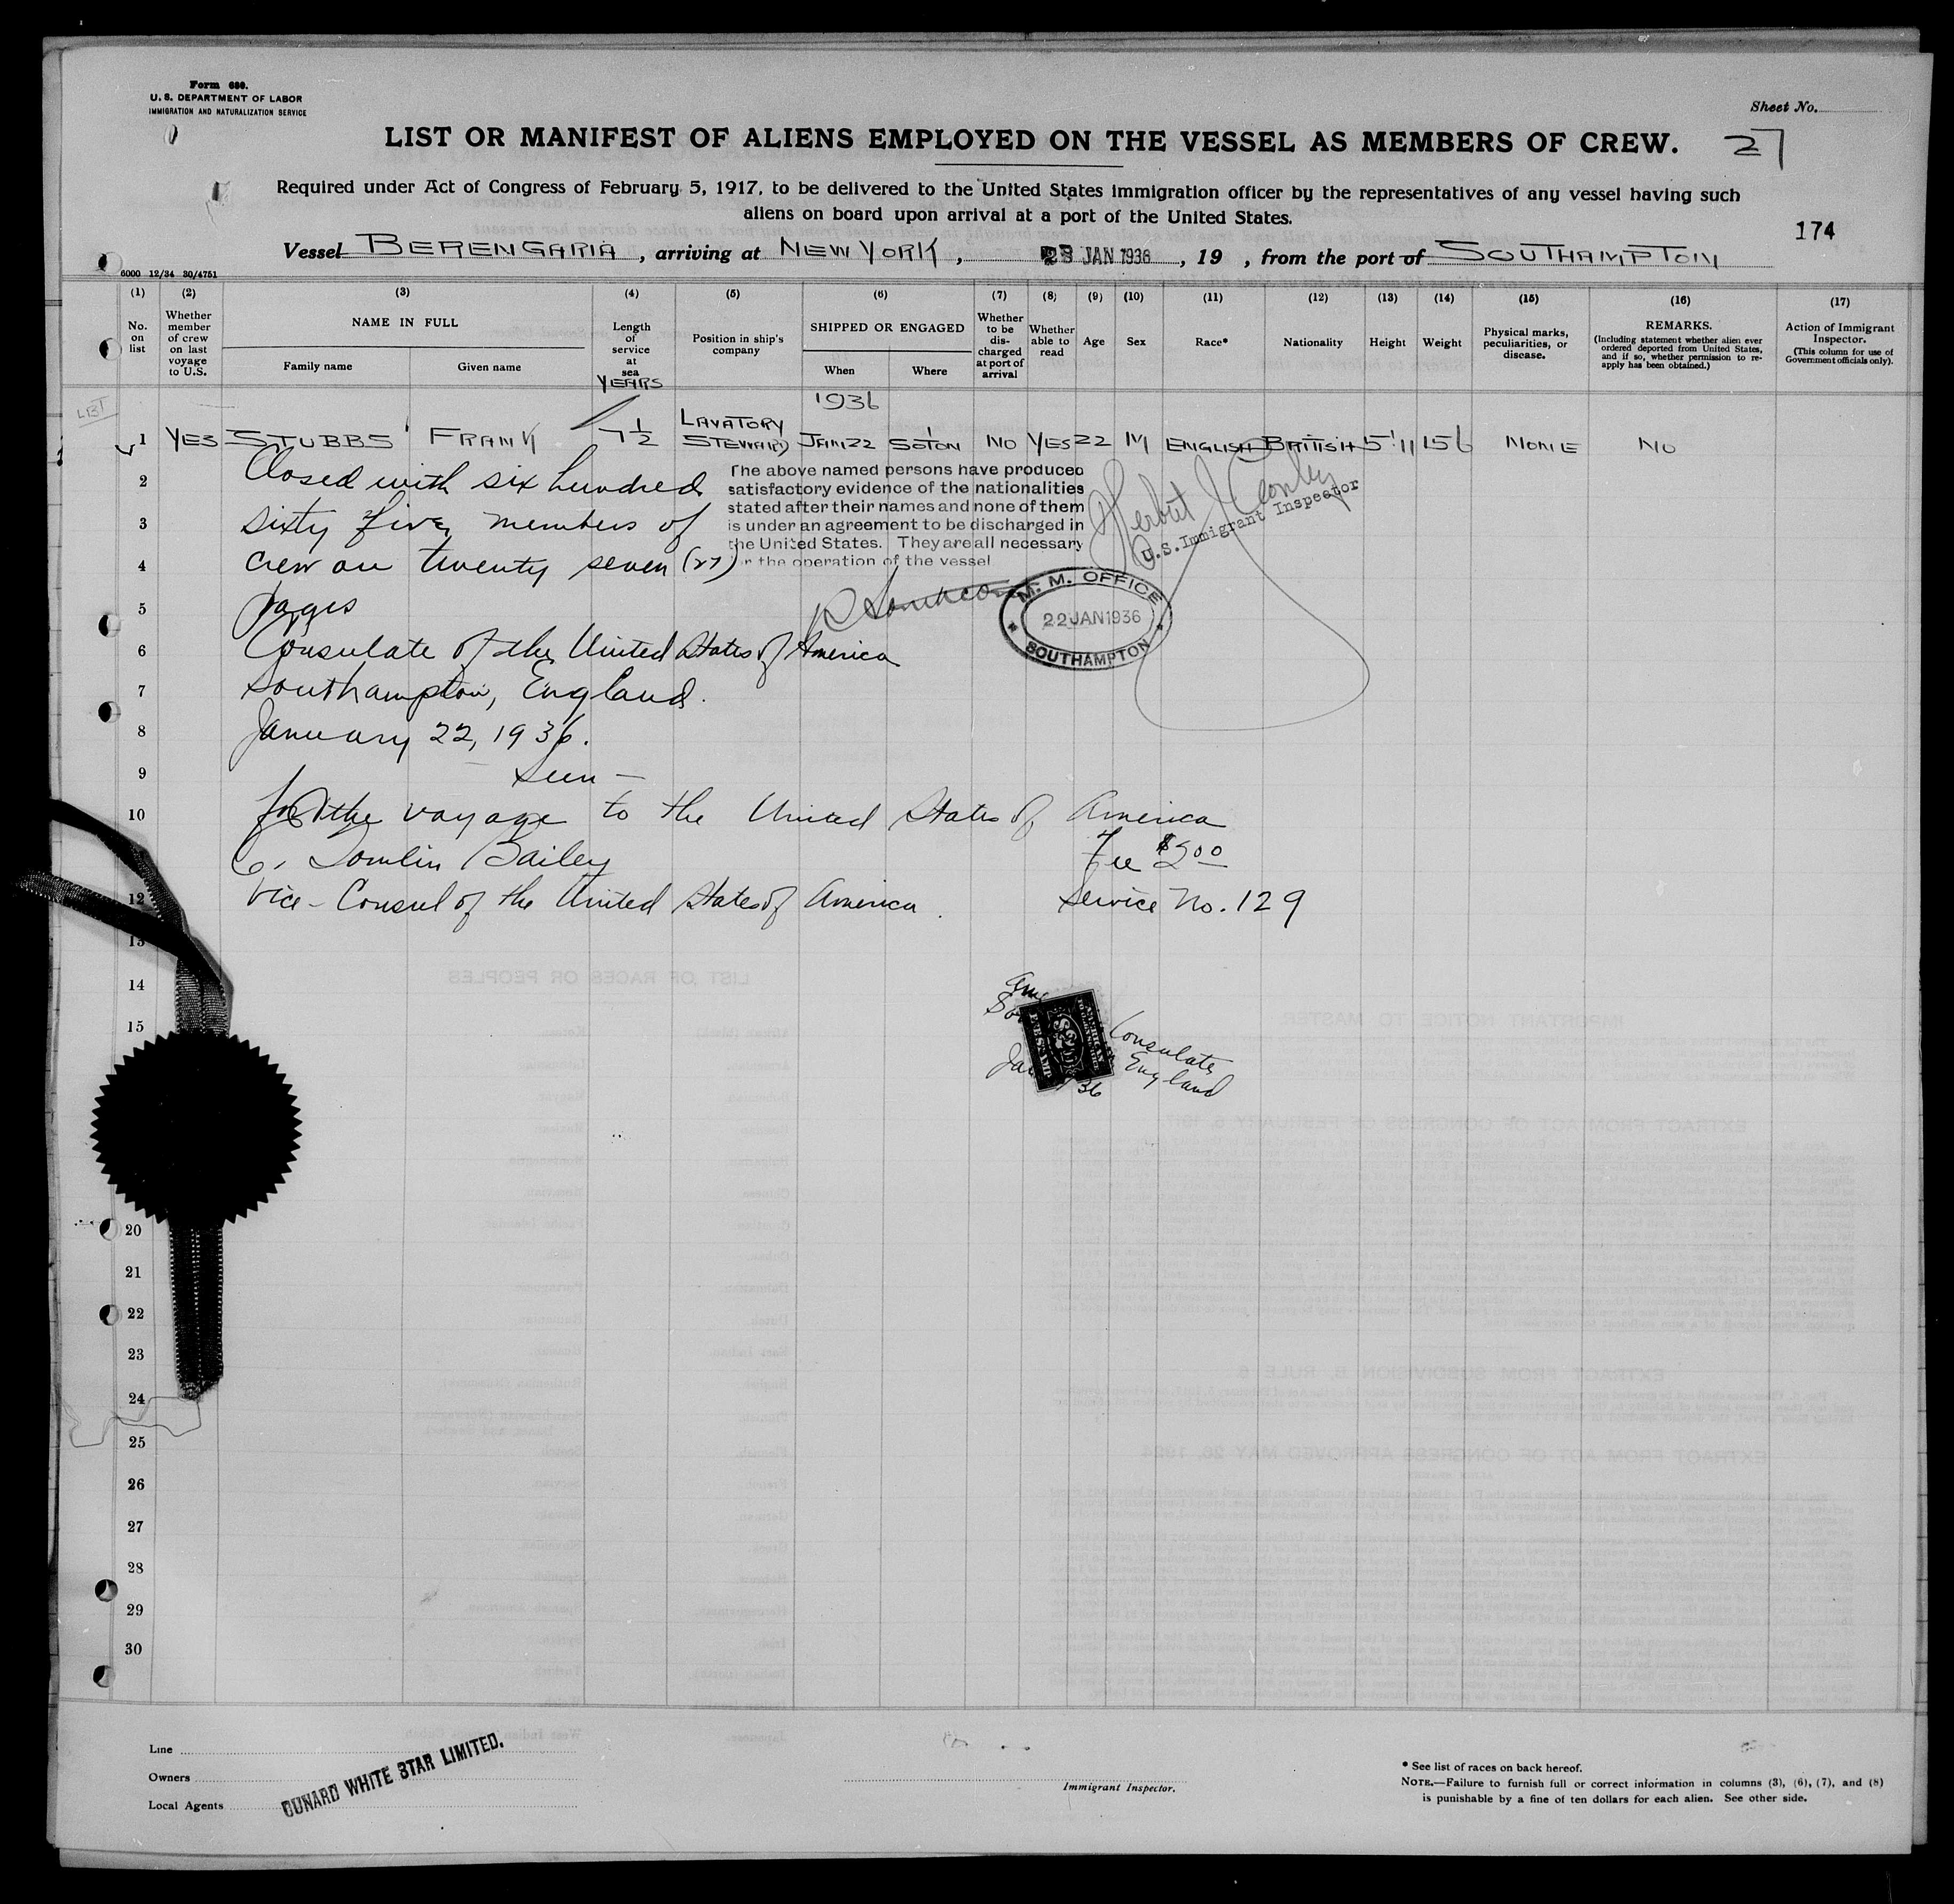 Form 680.
U. S. DEPARTMENT OF LABOR
IMMIGRATION AND NATURALIZATION SERVICE
Sheet No.
LIST OR MANIFEST OF ALIENS EMPLOYED ON THE VESSEL AS MEMBERS OF CREW. 27
Required under Act of Congress of February 5, 1917, to be delivered to the United States immigration officer by the representatives of any vessel having such
aliens on board upon arrival at a port of the United States.
174
Vessel BERENGARIA, arriving at NEW YORK, 28 JAN 1936, 19 , from the port of SOUTHAMPTON
6000 12/34 30/4751
(1) (2) (3) (4) (5) (6) (7) (8) (9) (10) (11) (12) (13) (14) (15) (16) (17)
No. on list
Whether member of crew on last voyage to U.S.
NAME IN FULL
Family name Given name
Length of service at sea
YEARS
Position in ship's company
SHIPPED OR ENGAGED
When Where
Whether to be discharged at port of arrival
Whether able to read
Age
Sex
Race*
Nationality
Height
Weight
Physical marks, peculiarities, or disease.
REMARKS.
(Including statement whether alien ever ordered deported from United States, and if so, whether permission to re-apply has been obtained.)
Action of Immigrant Inspector.
(This column for use of Government officials only).
1936
1 YES STUBBS FRANK 7 1/2 LAVATORY STEWARD JAN 22 SOTON NO YES 22 M ENGLISH BRITISH 5'11 156 NONE NO
2 Closed with six hundred
3 sixty five members of
4 crew on twenty seven (27)
5 pages
6 Consulate of the United States of America
7 Southampton, England.
8 January 22, 1936.
9 Seen —
10 for the voyage to the United States of America
C. Tomlin Bailey Fee $2.00
12 Vice-Consul of the United States of America. Service No. 129
The above named persons have produced
satisfactory evidence of the nationalities
stated after their names and none of them
is under an agreement to be discharged in
the United States. They are all necessary
the operation of the vessel
U.S. Immigrant Inspector
M. M. OFFICE
22 JAN 1936
SOUTHAMPTON
13
14
15
AMERICAN
FOREIGN SERVICE
FEE STAMP
Consulate,
England
36
20
21
22
23
24
25
26
27
28
29
30
Line
Owners
Local Agents
CUNARD WHITE STAR LIMITED.
Immigrant Inspector.
* See list of races on back hereof.
NOTE.—Failure to furnish full or correct information in columns (3), (6), (7), and (8)
is punishable by a fine of ten dollars for each alien. See other side.